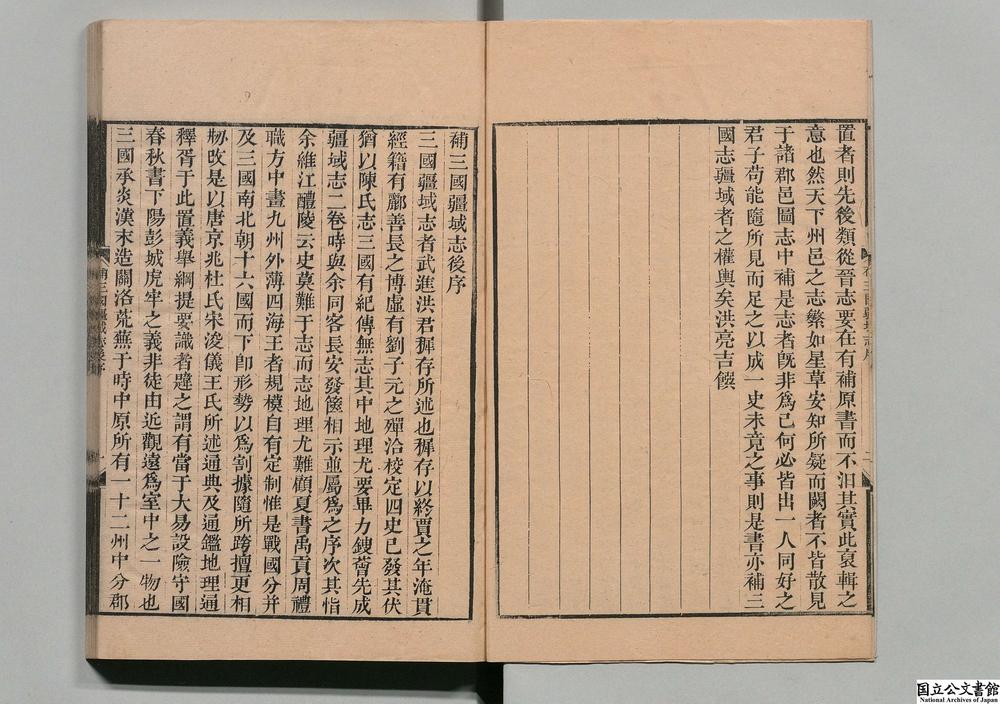 置者則先後類從晉志要在有補原書而不汩其實此裒輯之
意也然天下州邑之志繁如星草安知所疑而闕者不皆散見
于諸郡邑圖志中補是志者旣非爲己何必皆出一人同好之
君子苟能隨所見而足之以成一史未竟之事則是書亦補三
國志疆域者之權輿矣洪亮吉饌
補三國疆域志後序
三國疆域志者武進洪君穉存所述也穉存以終賈之年淹貫
經籍有酈善長之博虛有劉子元之殫洽校定四史已發其伏
猶以陳氏志三國有紀傳無志其中地理尤要畢力鎪薈先成
疆域志二卷時與余同客長安發篋相示並屬爲之序次其恉
余維江醴陵云史莫難于志而志地理尤難顧夏書禹貢周禮
職方中畫九州外薄四海王者規模自有定制惟是戰國分并
及三國南北朝十六國而下卽形勢以爲割據隨所跨擅更相
刱攺是以唐京兆杜氏宋浚儀王氏所述通典及通鑑地理通
釋胥于此置義舉綱提要識者韙之謂有當于大易設險守國
春秋書下陽彭城虎牢之義非徒由近觀遠爲室中之一物也
三國承炎漢末造關洛荒蕪于時中原所有一十二州中分郡
補三國疆域志後序
一
国立公文書館
National Archives of Japan